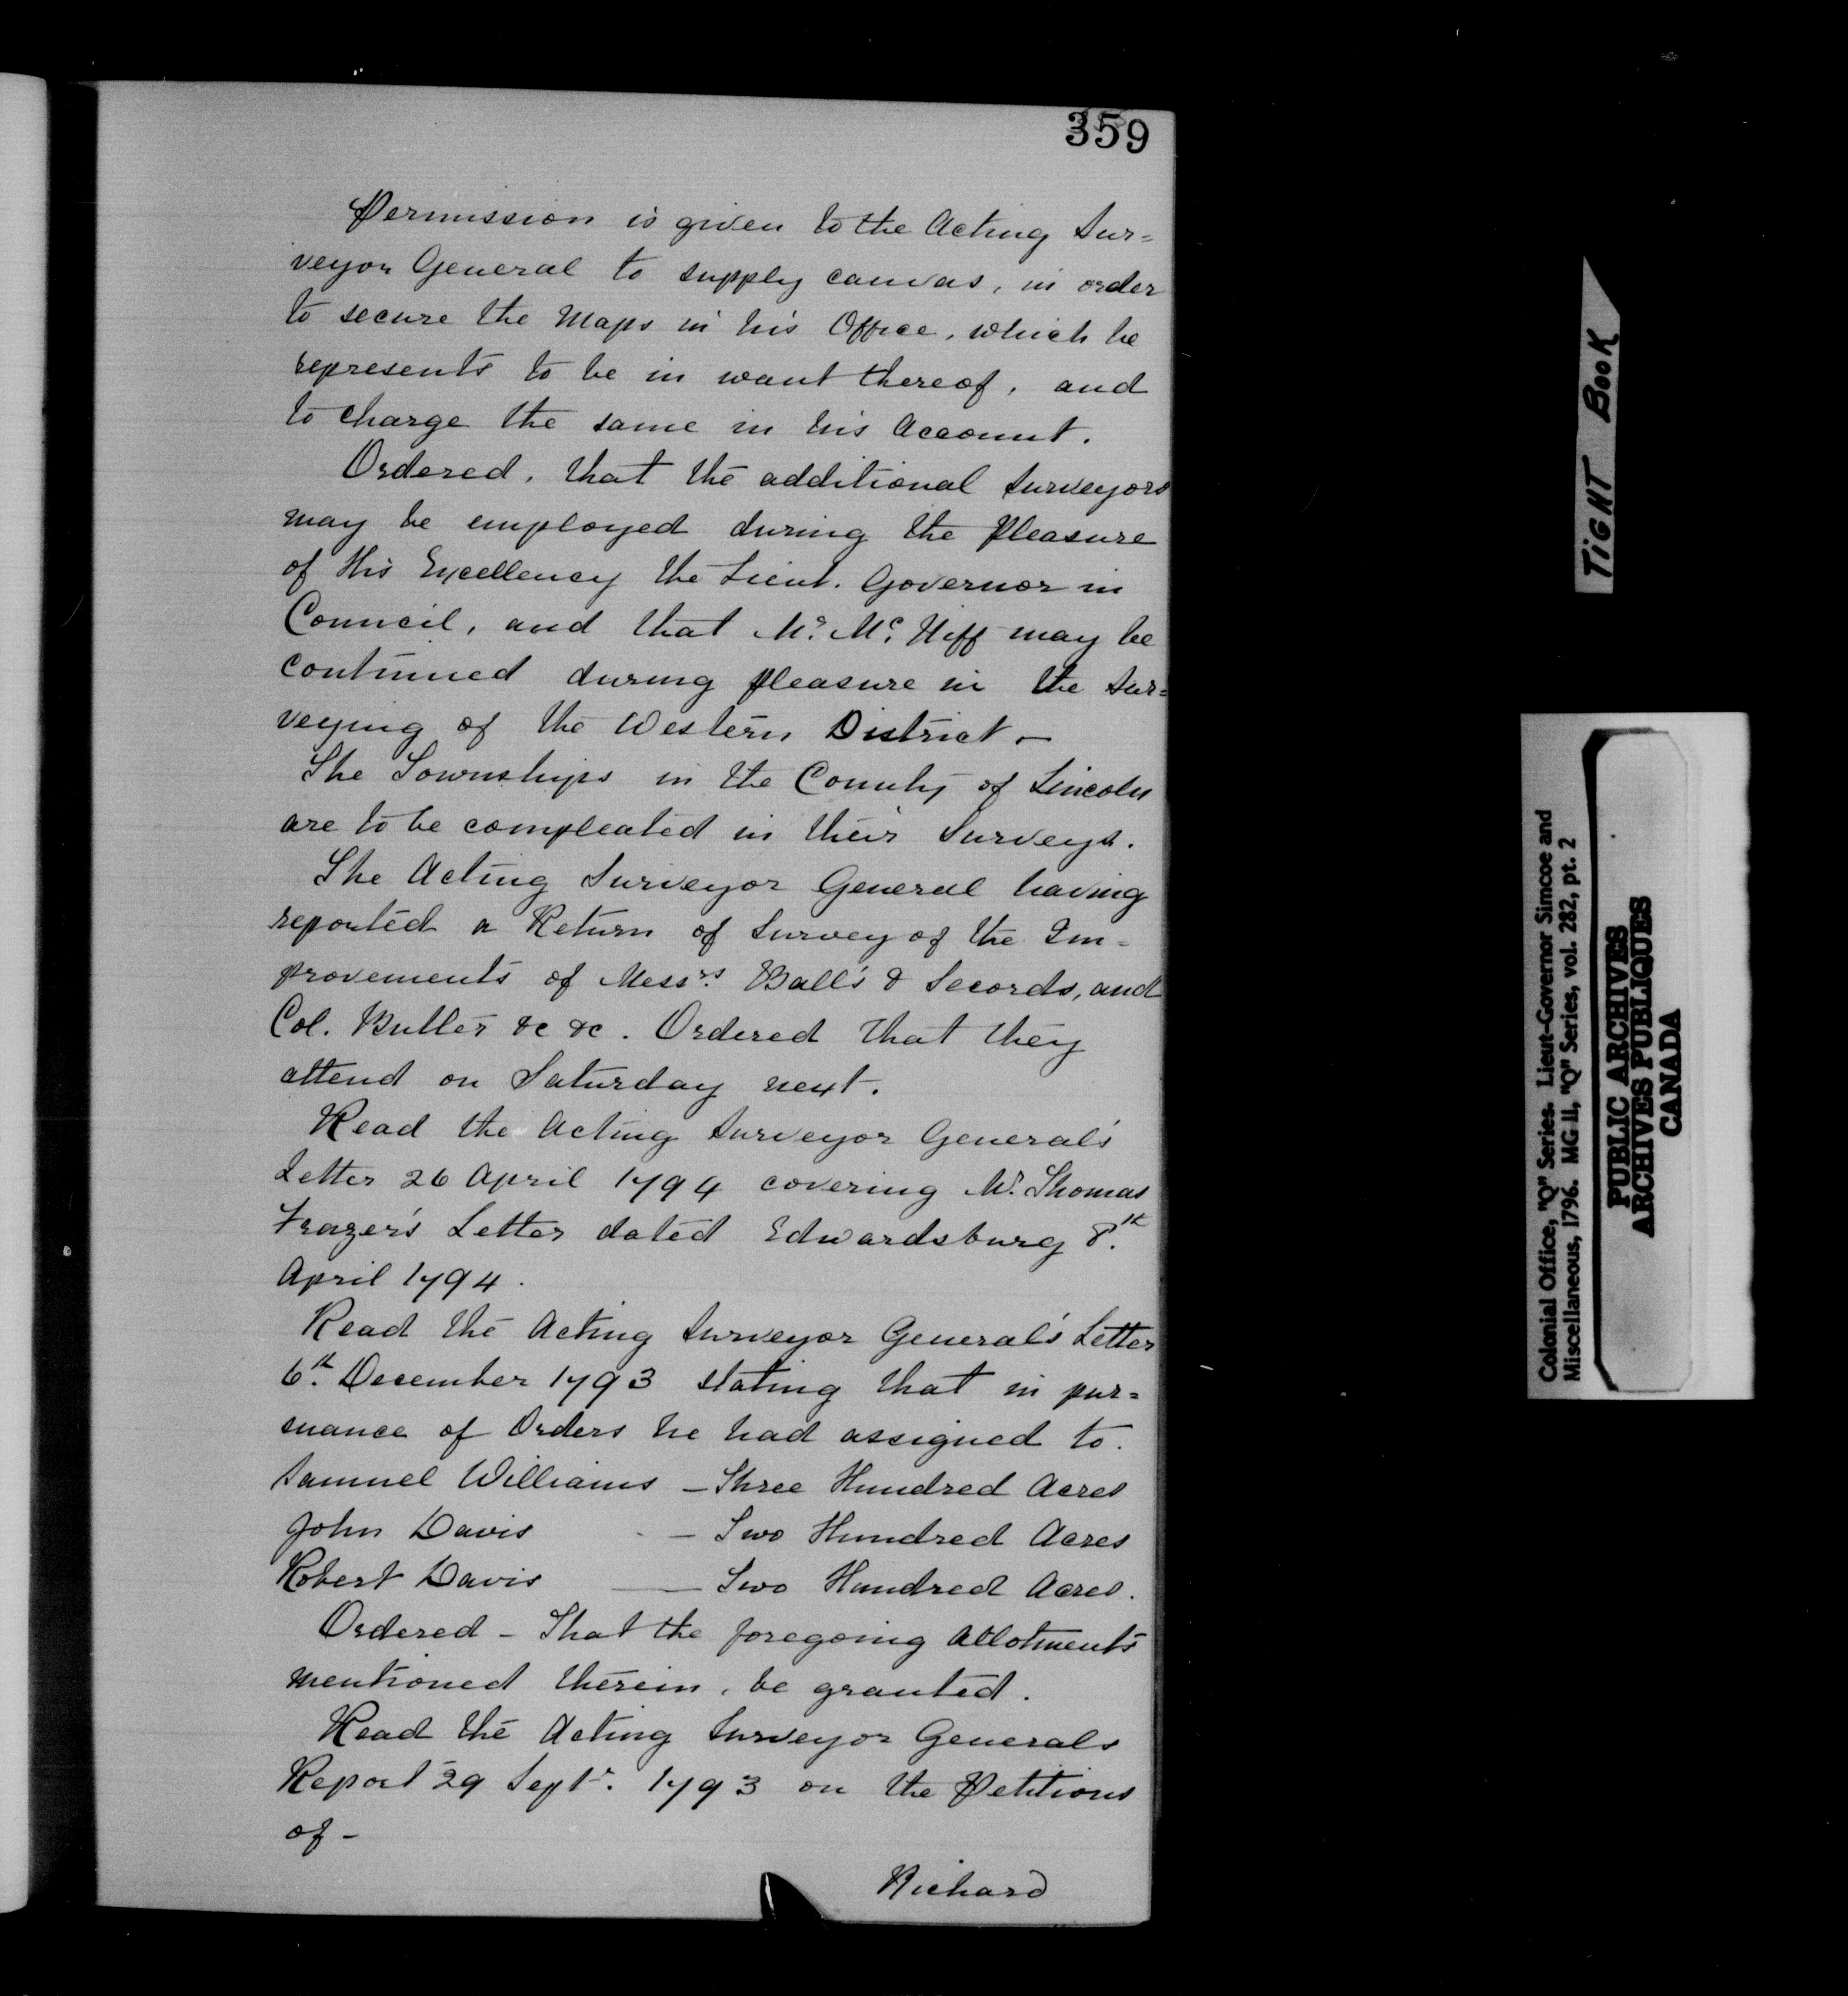 359
Permission is given to the Acting Sur=
veyor General to supply canvas, in order
to secure the Maps in his Office, which he
represents to be in want thereof, and
to charge the same in his Account.
Ordered, that the additional Surveyors
may be employed during the pleasure
of His Excellency the Lieut. Governor in
Council, and that Mr. Mc. Niff may be
continued during pleasure in the Sur=
veying of the Western District.—
The Townships in the County of Lincoln
are to be compleated in their Surveys.
The Acting Surveyor General having
reported a Return of Survey of the Im=
provements of Messrs. Ball's & Secords, and
Col. Butler &c &c. Ordered that they
attend on Saturday next.
Read the Acting Surveyor General's
Letter 26 April 1794 covering Mr. Thomas
Frazer's Letter dated Edwardsburg 8.th
April 1794.
Read the Acting Surveyor General's Letter
6.th December 1793 stating that in pur=
suance of Orders he had assigned to.
Samuel Williams — Three Hundred Acres
John Davis - — Two Hundred Acres
Robert Davis — Two Hundred Acres.
Ordered - That the foregoing Allotments
mentioned therein, be granted.
Read the Acting Surveyor Generals
Report 29 Septr. 1793 on the Petitions
of -
Richard
TIGHT BOOK
Colonial Office, "Q" Series. Lieut-Governor Simcoe and
Miscellaneous, 1796. MG 11, "Q" Series, vol. 282, pt. 2
PUBLIC ARCHIVES
ARCHIVES PUBLIQUES
CANADA